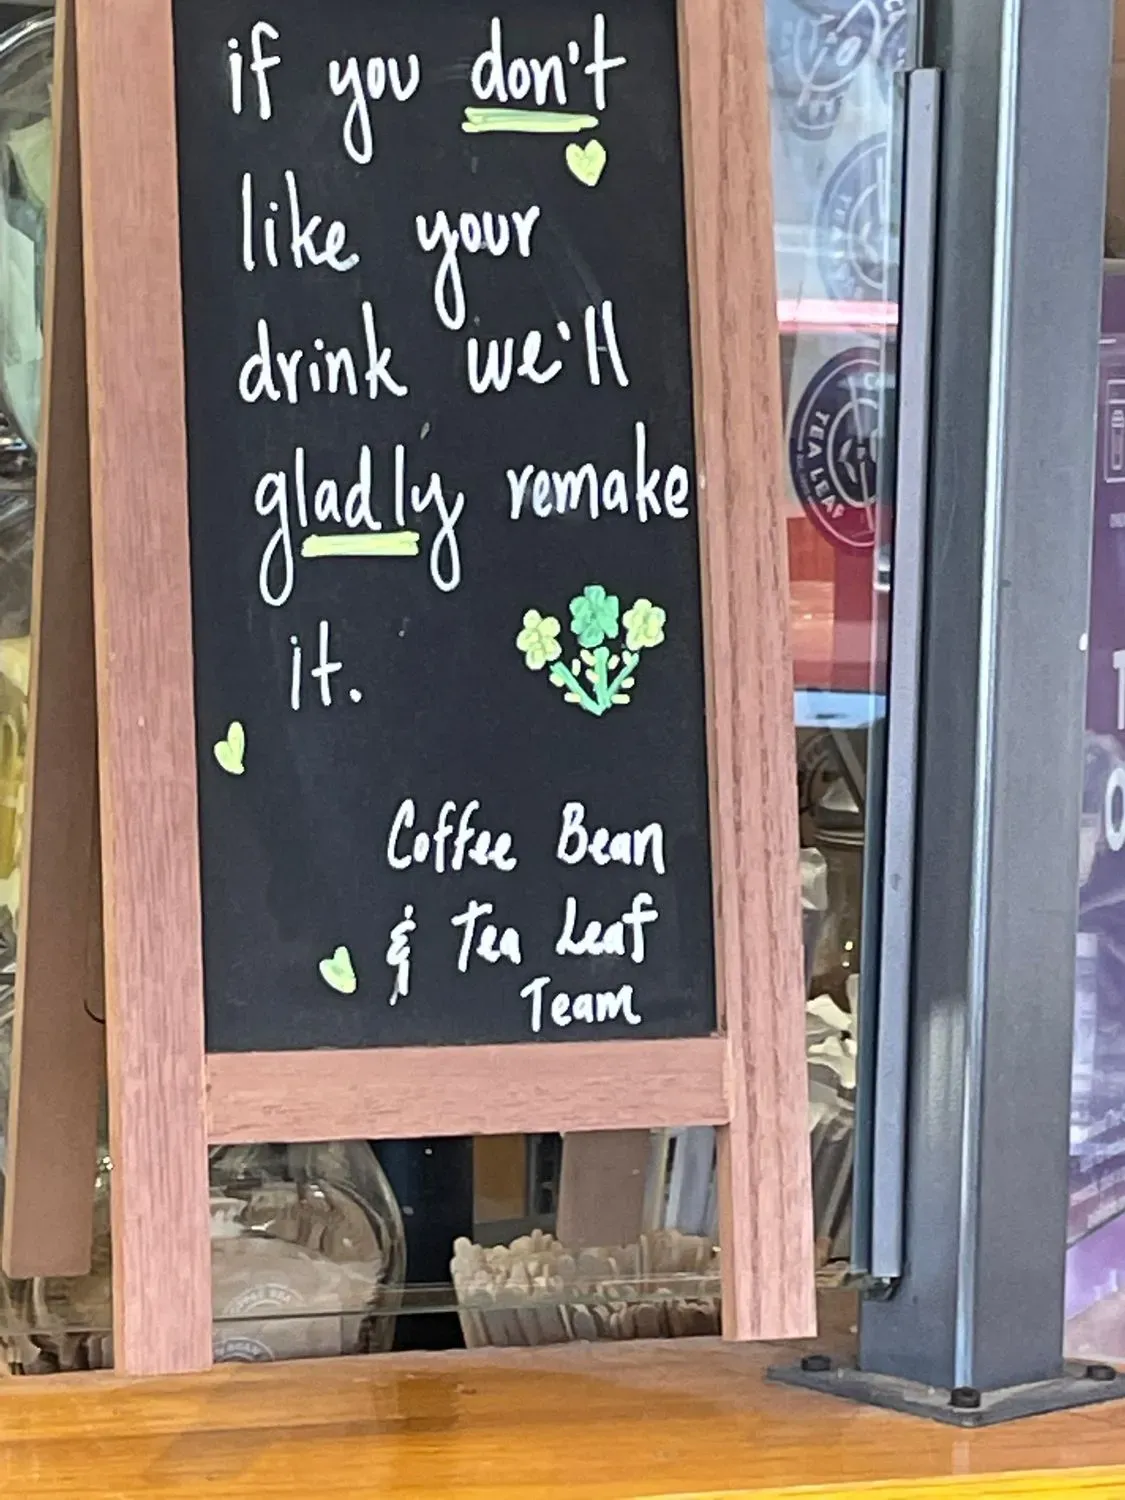 if you don't
like your
drink we'll
gladly remake
it.
Coffee Bean
& Tea Leaf
Team
TEA LEAF